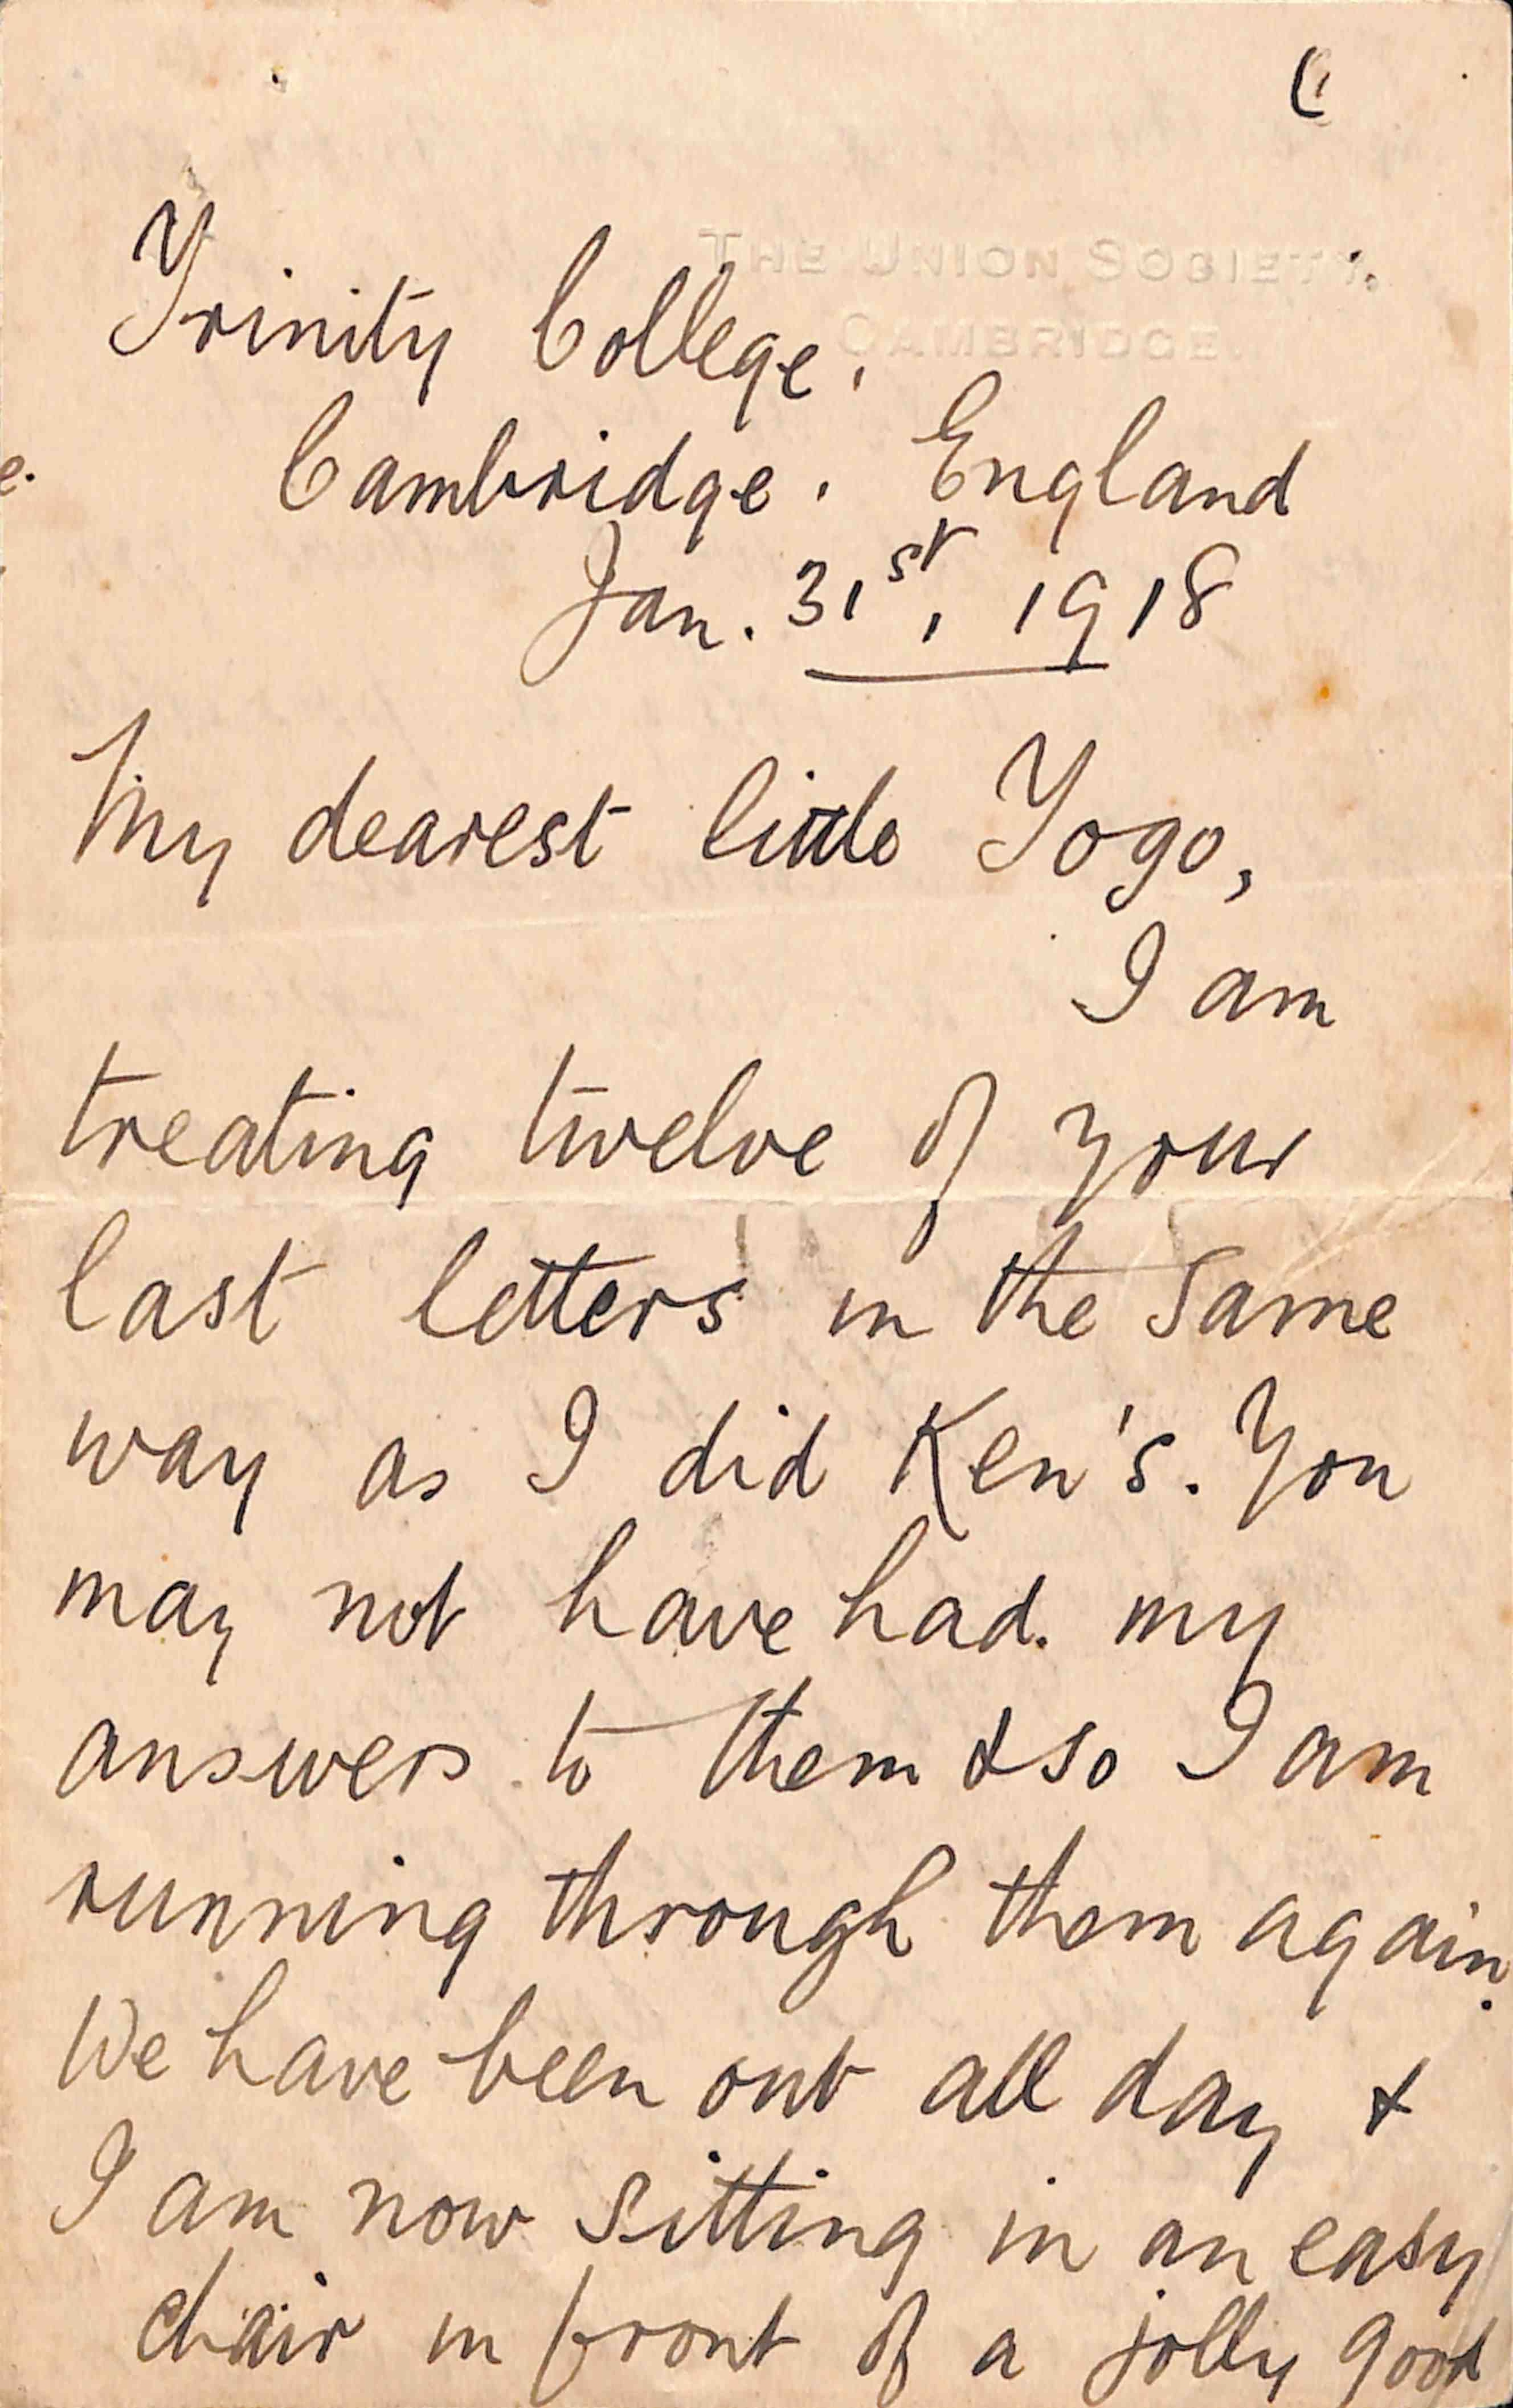 THE UNION SOCIETY.
CAMBRIDGE.
Trinity College,
Cambridge. England
Jan. 31st, 1918
My dearest little Yogo,
I am
treating twelve of your
last letters in the same
way as I did Ken's. You
may not have had my
answers to them & so I am
running through them again.
We have been out all day &
I am now sitting in an easy
chair in front of a jolly good